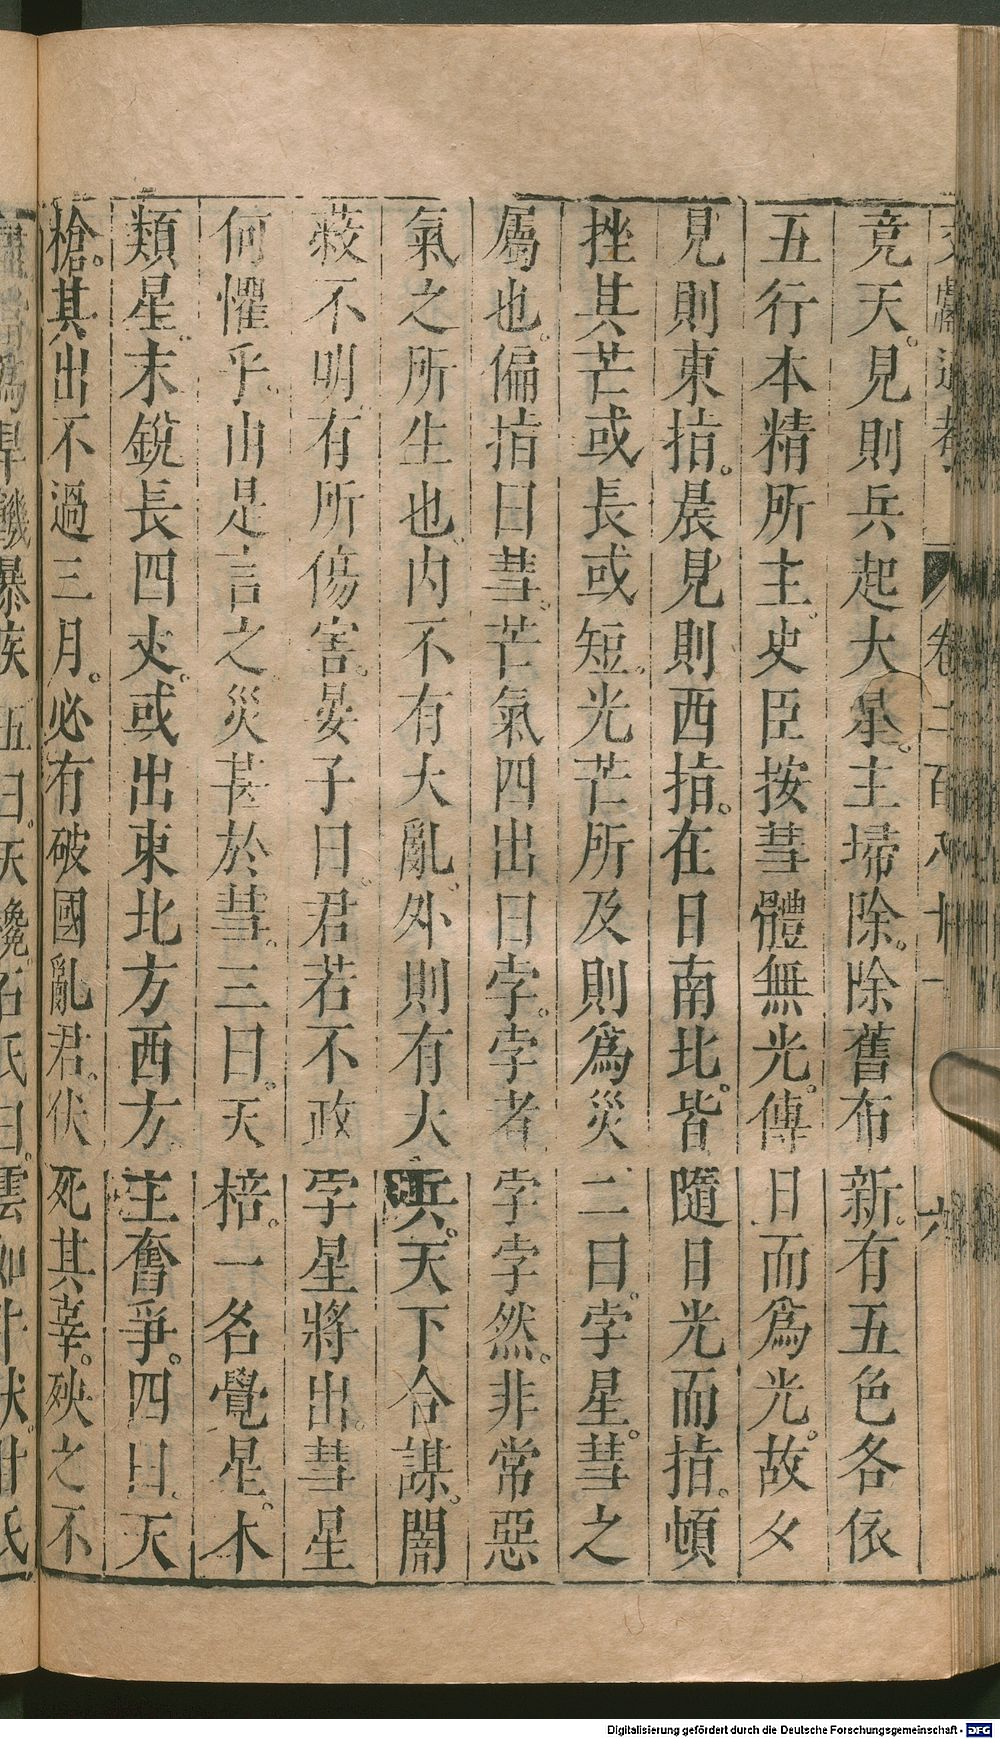 文獻通考 卷二百八十一 六
竟天。見則兵起大星。主埽除。除舊布新。有五色各依
五行本精所主。史臣按彗體無光。傅日而爲光。故夕
見則東指。晨見則西指。在日南北。皆隨日光而指。頓
挫其芒或長或短。光芒所及則爲災二曰。孛星。彗之
屬也。偏指曰彗。芒氣四出曰孛。孛者孛孛然。非常惡
氣之所生也。内不有大亂。外則有大兵。天下合謀。闇
蔽不明。有所傷害。晏子曰。君若不政孛星將出。彗星
何懼乎。由是言之災甚於彗。三曰。天棓。一名覺星。木
類星。末銳長四丈。或出東北方西方主奮爭。四曰。天
槍。其出不過三月。必有破國亂君。伏死其辜。殃之不
爲旱饑暴疾 五曰。天欃。石氏曰。雲如牛狀。甘氏
Digitalisierung gefördert durch die Deutsche Forschungsgemeinschaft - DFG